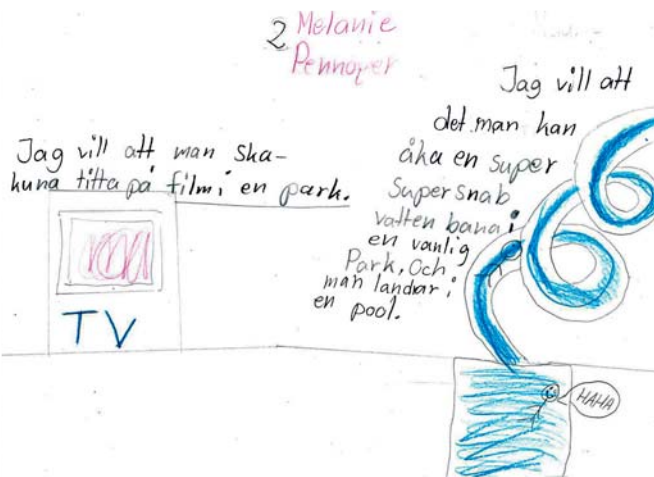 2 Melanie
Pennoyer
Jag vill att man ska-
kuna titta på film i en park.
TV
Jag vill att
det man kan
åka en super
super snab
vatten bana i
en vanlig
Park, Och
man landar i
en pool.
HAHA